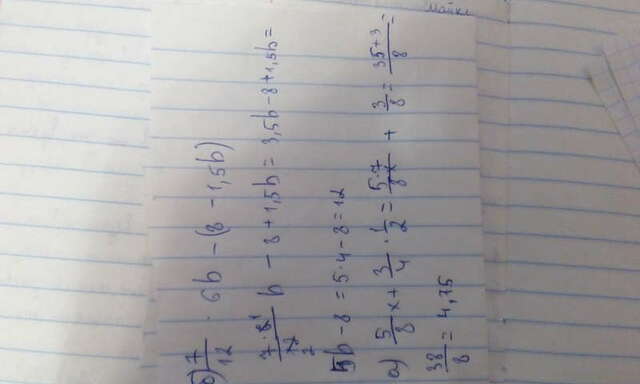 Майкл
б) 7/12 · 6b - (8 - 1,5b)
7·6¹/12 2 b - 8 + 1,5b = 3,5b - 8 + 1,5b =
5b - 8 = 5·4 - 8 = 12
а) 5/8 x + 3/4 · 1/2 = 5·7/8 + 3/8 = 35+3/8 =
38/8 = 4,75